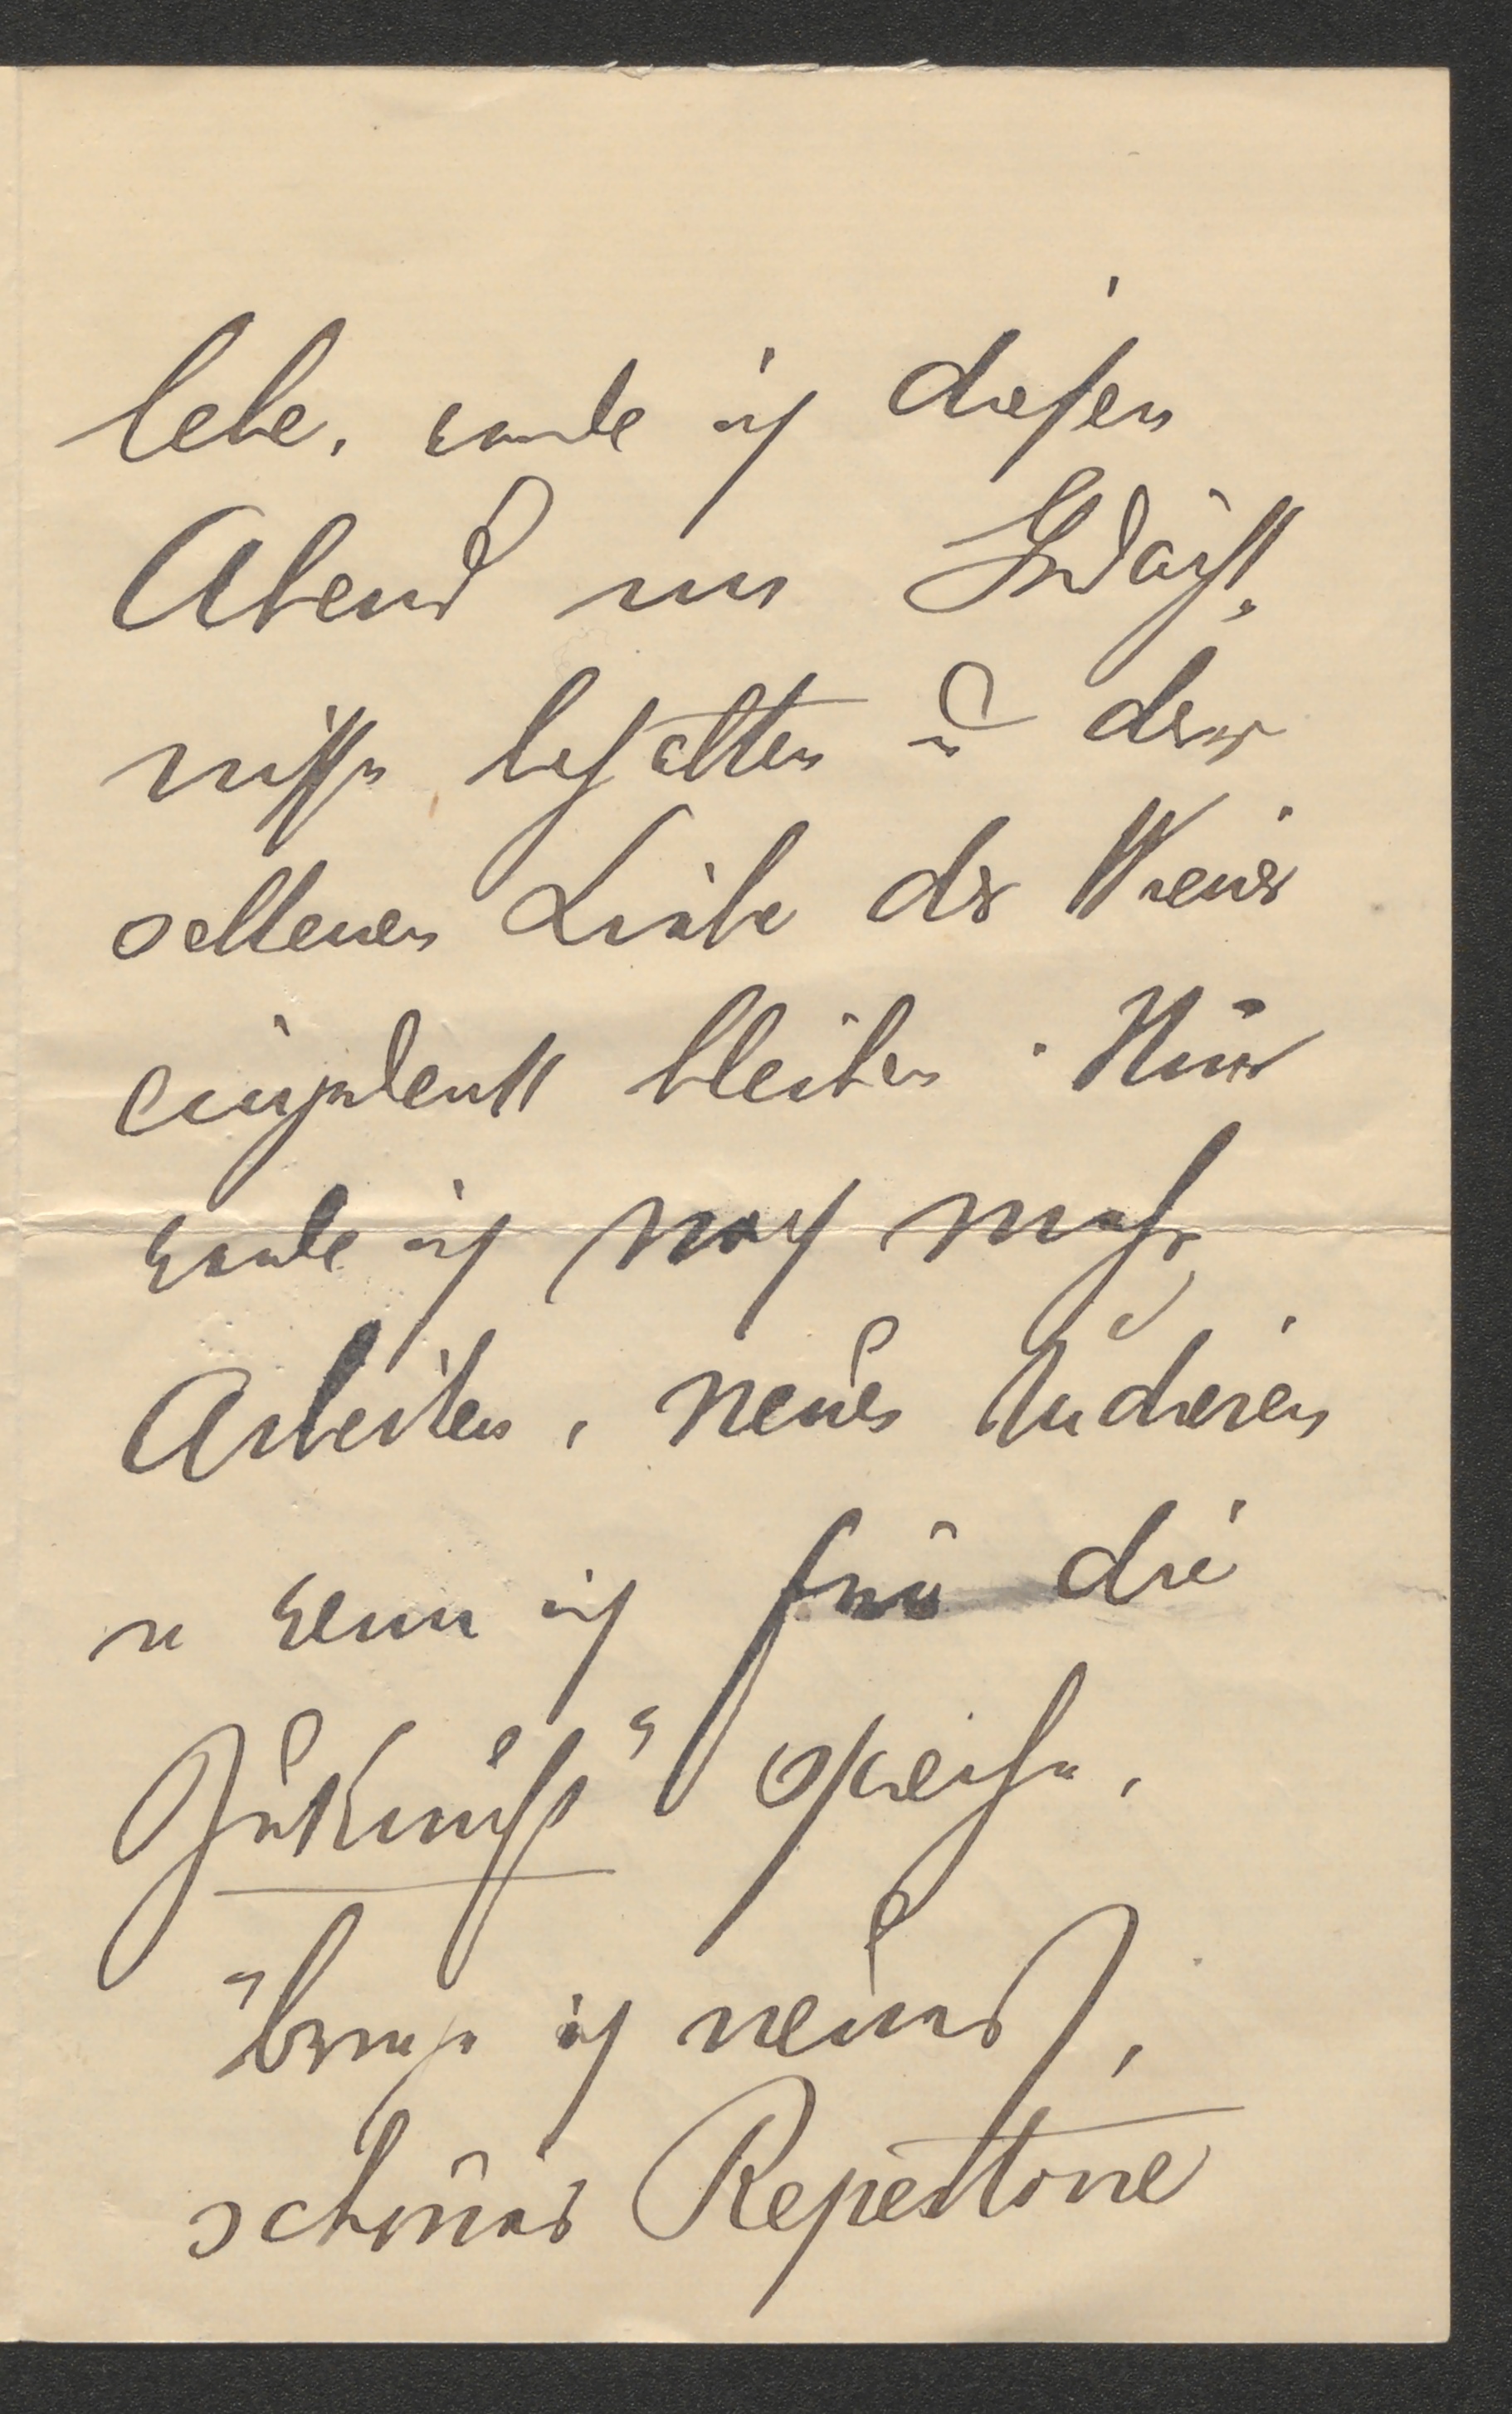 lebe, werde ich diesen
Abend im Gedächt-
nisse behalten u. der
seltenen Liebe der Wiener
eingedenk bleiben. Nun
werde ich noch mehr
Arbeiten, neues studieren
u wenn ich für die
Zukunft" spreche,
"bringe ich neues,
schönes Repertoire